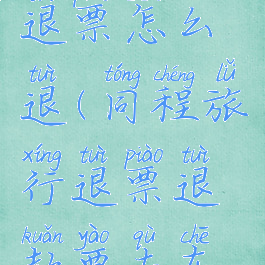 退票怎么
tuì tóng chéng lǚ
退(同程旅
xíng tuì piào tuì
行退票退
kuǎn yào qù chē
款要去车